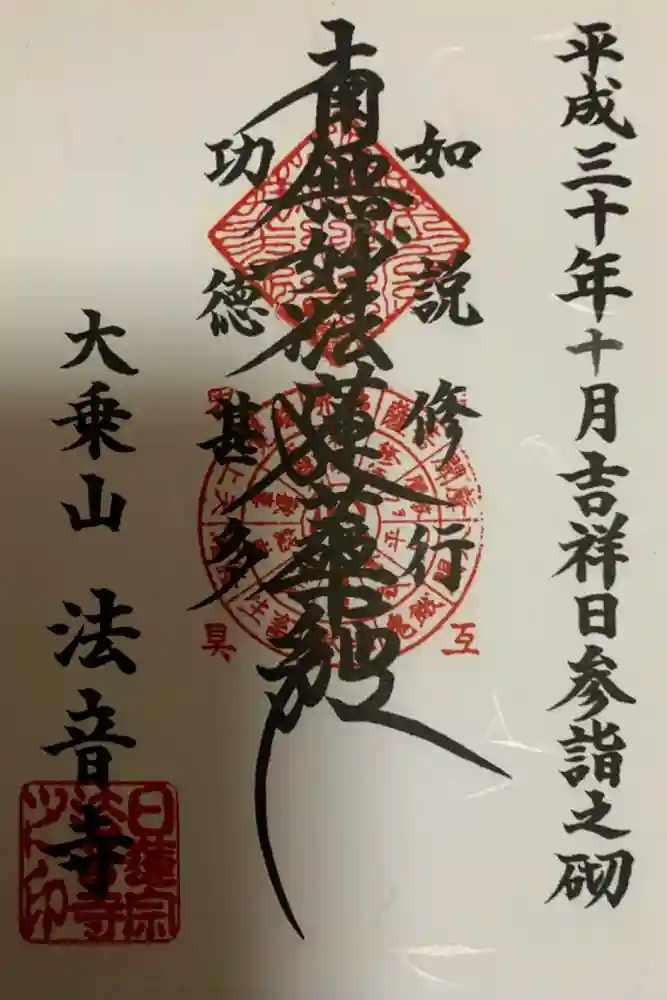 平成三十年十月吉祥日参詣之砌
如説修行
南無妙法蓮華経
功徳甚多
大乗山 法音寺
日蓮宗
法音寺
互
具